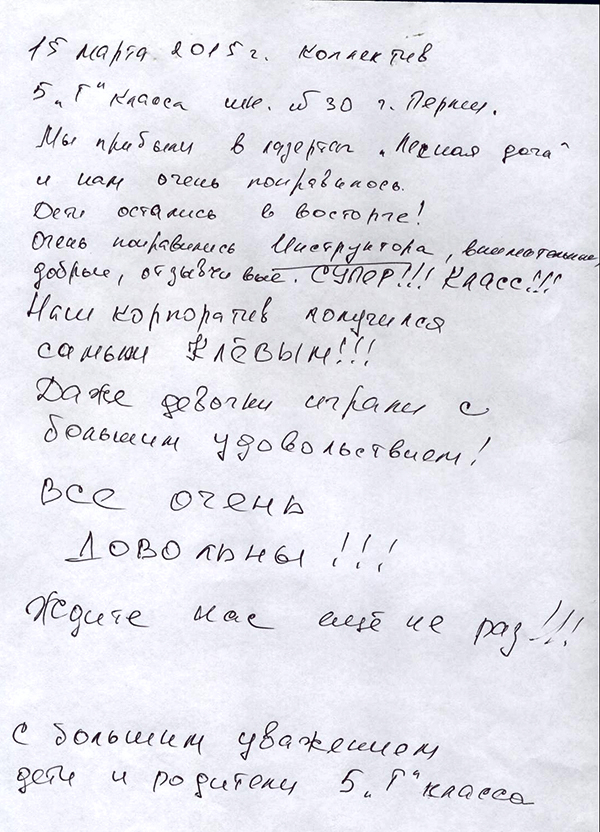 15 марта 2015 г. коллектив
5 „Г“ класса шк. №30 г. Перми.
Мы прибыли в лазертаг „Лесная дача“
и нам очень понравилось.
Дети остались в восторге!
Очень понравились Инструктора, внимательные,
добрые, отзывчивые. СУПЕР!!! Класс!!!
Наш корпоратив получился
самым КЛЁВЫМ!!!
Даже девочки играли с
большим удовольствием!
Все очень
ДОВОЛЬНЫ!!!
Ждите нас ещё не раз!!!
С большим уважением
дети и родители 5 „Г“ класса